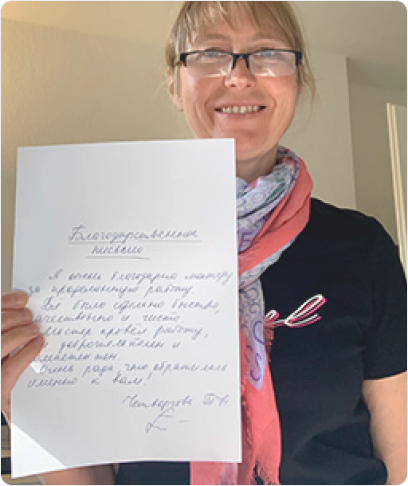 Благодарственное
письмо
Я очень благодарна мастеру
за проделанную работу.
Всё было сделано быстро,
качественно и чисто
Мастер провёл работу,
доброжелателен и
компетентен.
Очень рада, что обратилась
именно к вам!